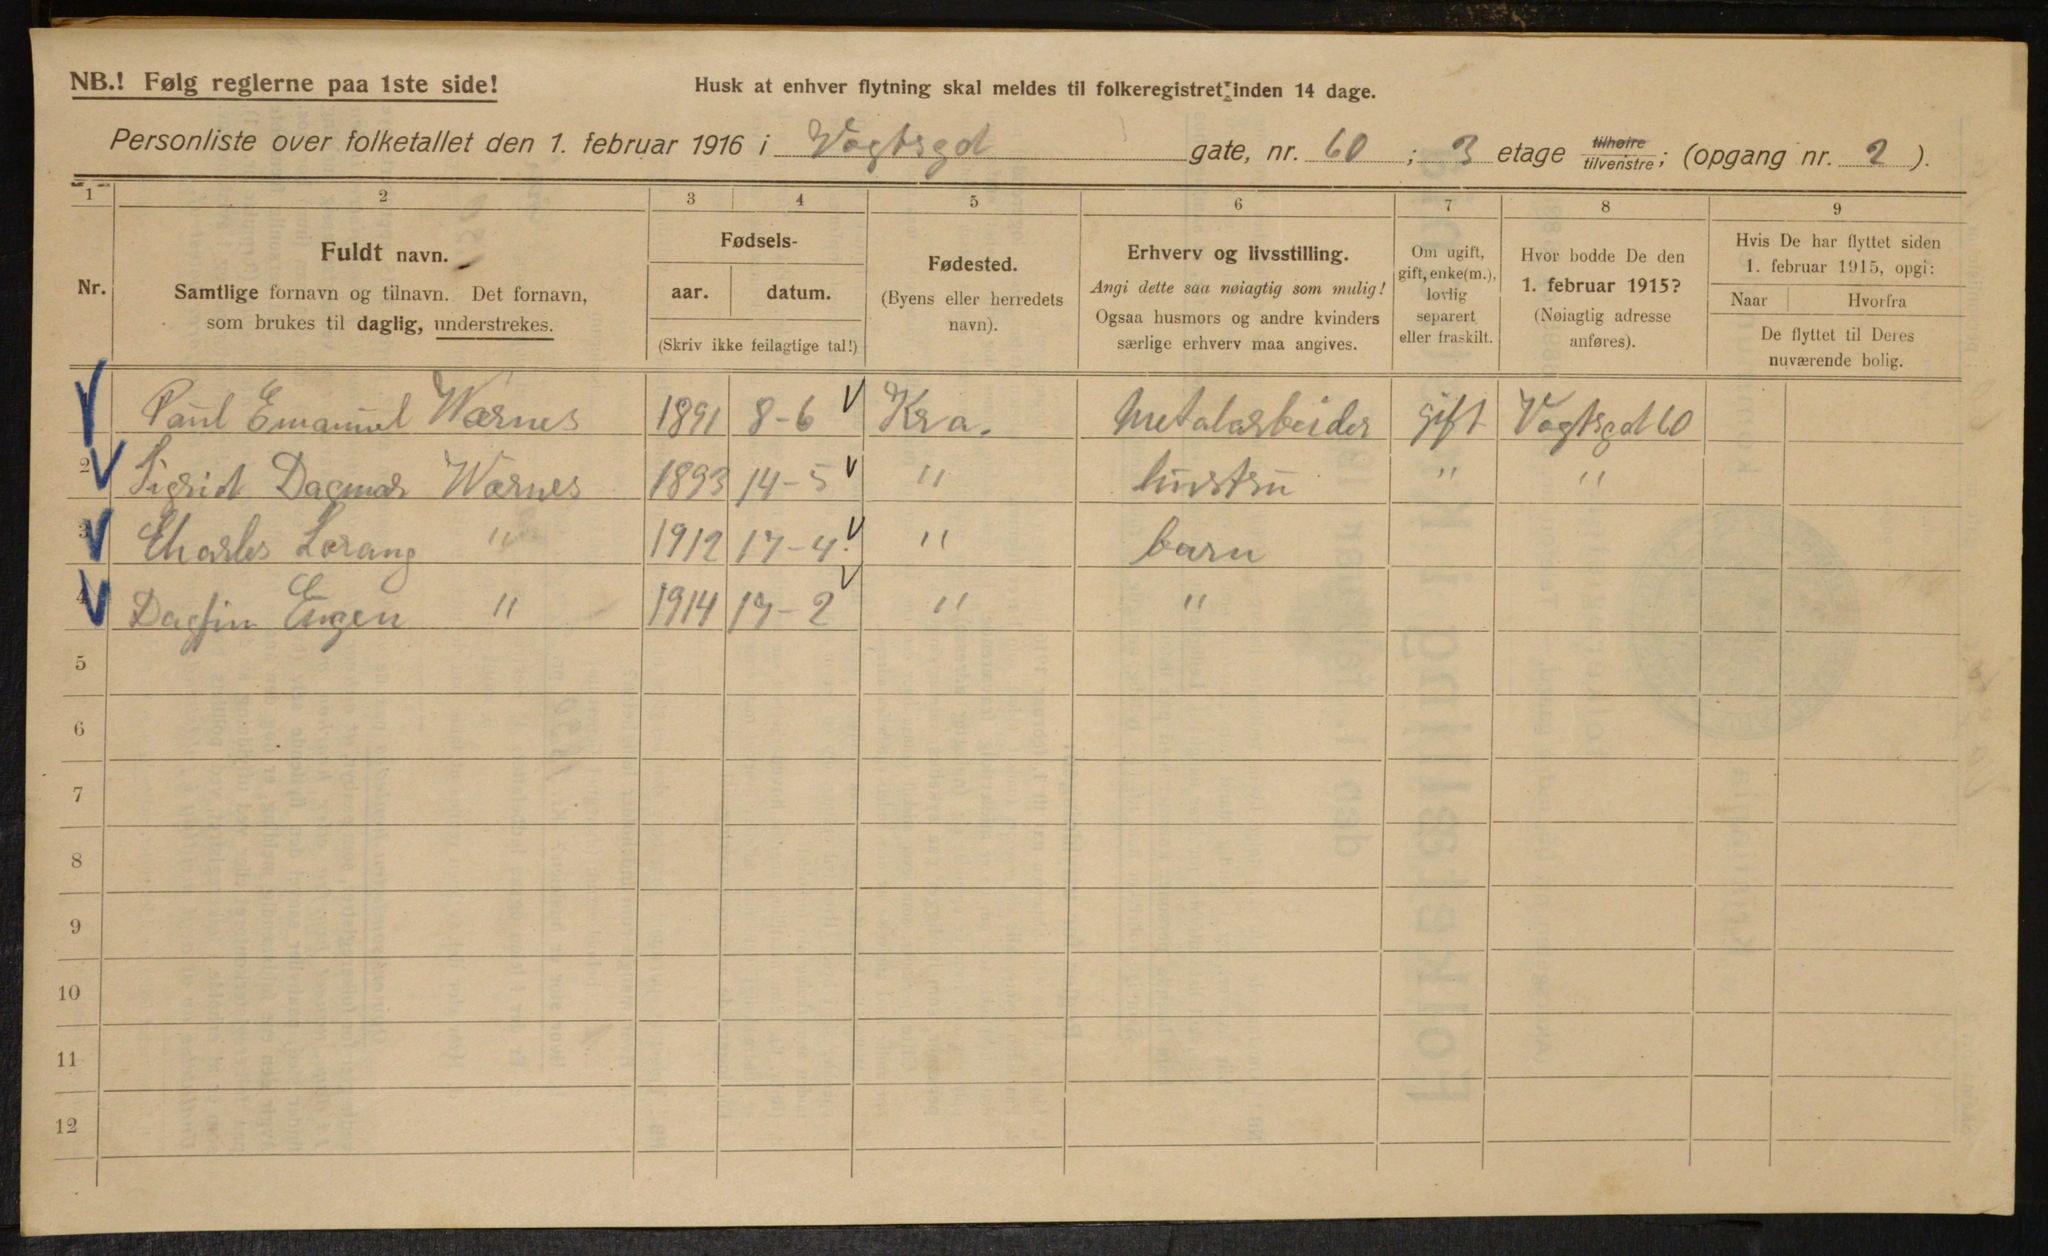 NB.! Følg reglerne paa 1ste side!
Husk at enhver flytning skal meldes til folkeregistret inden 14 dage.
Personliste over folketallet den 1. februar 1916 i Vogtsgt gate, nr. 60 ; 3 etage tilhøire tilvenstre; (opgang nr. 2 ).
1 2 3 4 5 6 7 8 9
Nr.
Fuldt navn.
Samtlige fornavn og tilnavn. Det fornavn,
som brukes til daglig, understrekes.
Fødsels-
aar. datum.
(Skriv ikke feilagtige tal!)
Fødested.
(Byens eller herredets
navn).
Erhverv og livsstilling.
Angi dette saa nøiagtig som mulig!
Ogsaa husmors og andre kvinders
særlige erhverv maa angives.
Om ugift,
gift, enke(m.),
lovlig
separert
eller fraskilt.
Hvor bodde De den
1. februar 1915?
(Nøiagtig adresse
anføres).
Hvis De har flyttet siden
1. februar 1915, opgi:
Naar Hvorfra
De flyttet til Deres
nuværende bolig.
Paul Emanuel Wærnes 1891 8-6 Kra. Metalarbeider gift Vogtsgt 60
2 Sigrid Dagmar Wærnes 1893 14-5 " hustru " "
3 Charles Lorang " 1912 17-4 " barn
4 Dagfin Eugen " 1914 17-2 " "
5
6
7
8
9
10
11
12